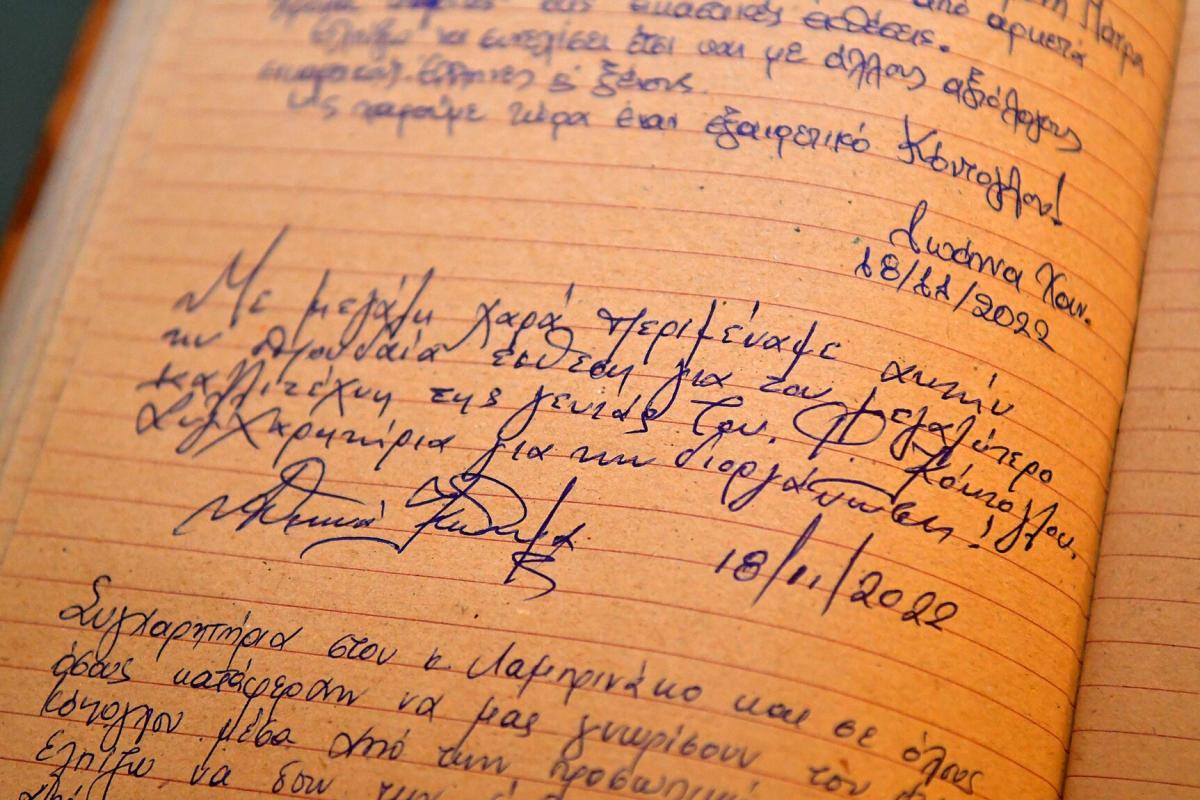 από αρκετά
εικαστικές εκθέσεις.
Ελπίζω να συνεχίσει έτσι και με άλλους αξιόλογους
Έλληνες & ξένους.
χαρούμε τώρα έναν εξαιρετικό Κόντογλου!
Ιωάννα Χαν.
18/11/2022
Με μεγάλη χαρά περιμέναμε αυτήν
την σπουδαία έκθεση για τον μεγαλύτερο
καλλιτέχνη της γενιάς του. Φ. Κόντογλου,
Συγχαρητήρια για την διοργάνωση!
18/11/2022
Συγχαρητήρια στον κ. Λαμπρινάκο και σε όλους
όσους κατάφεραν να μας γνωρίσουν τον
Κόντογλου μέσα από την προσωπική
Ελπίζω να δουν την